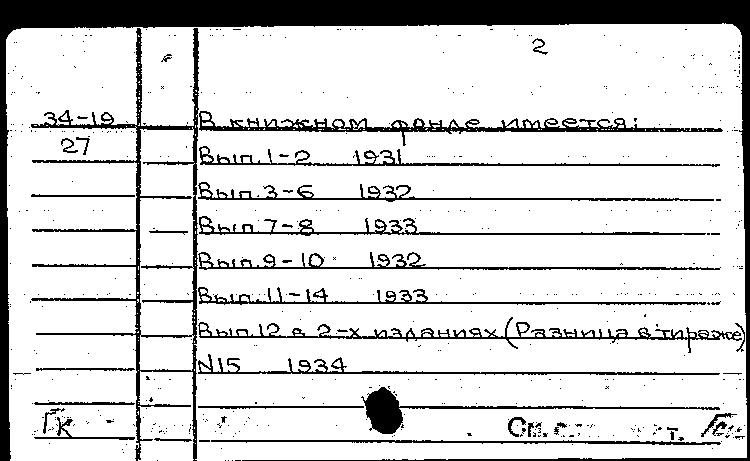 2
34-19 В книжном фонде имеется:
27
Вып. 1-2 1931
Вып. 3-6 1932
Вып. 7-8 1933
Вып. 9-10 1932
Вып. 11-14 1933
Вып 12 в 2-х изданиях (Разница в тираже)
N15 1934
ГК См.